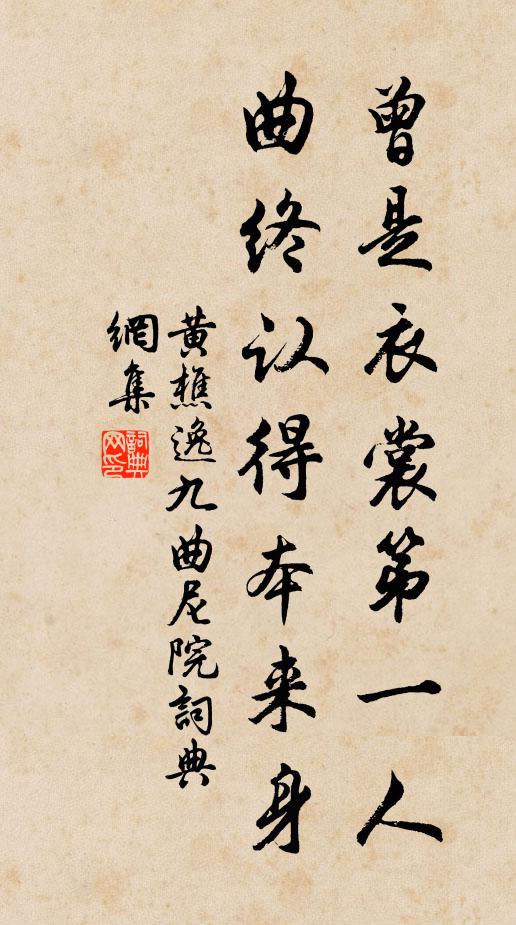 曾是衣裳第一人
曲终认得本来身
黄樵逸九曲尼院詞典
網集
詞典
网印